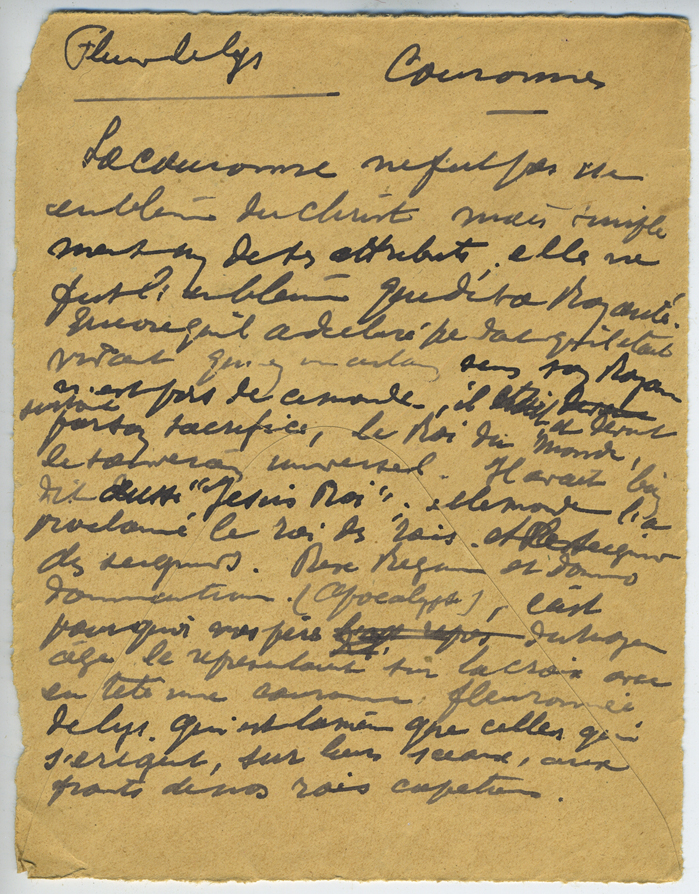 Fleur de lys   Couronnes
La couronne ne fut pas un
emblème du Christ mais simple
ment un de ses attributs, elle ne
fut l'emblème que de sa Royauté.
Quoiqu'il a déclaré pendant qu'il était
vivant que son Royau
n'est pas de ce monde, il était devenu a devait
surtout
par son sacrifice, le Roi du Monde,
le souverain universel. Il avait bien
dit aussi "Je suis Roi". et le monde l'a
proclamé le roi des rois. et le Seigneur
des seigneurs. Rex Regum et domino
dominantium. (Apocalypse), c'est
pourquoi nos pères du moyen
âge le représentaient sur la croix avec
en tête une couronne fleuronnée
de lys. qui est la même que celles qui
s'erigent, sur leurs sceaux, aux
fronts de nos rois capétiens.